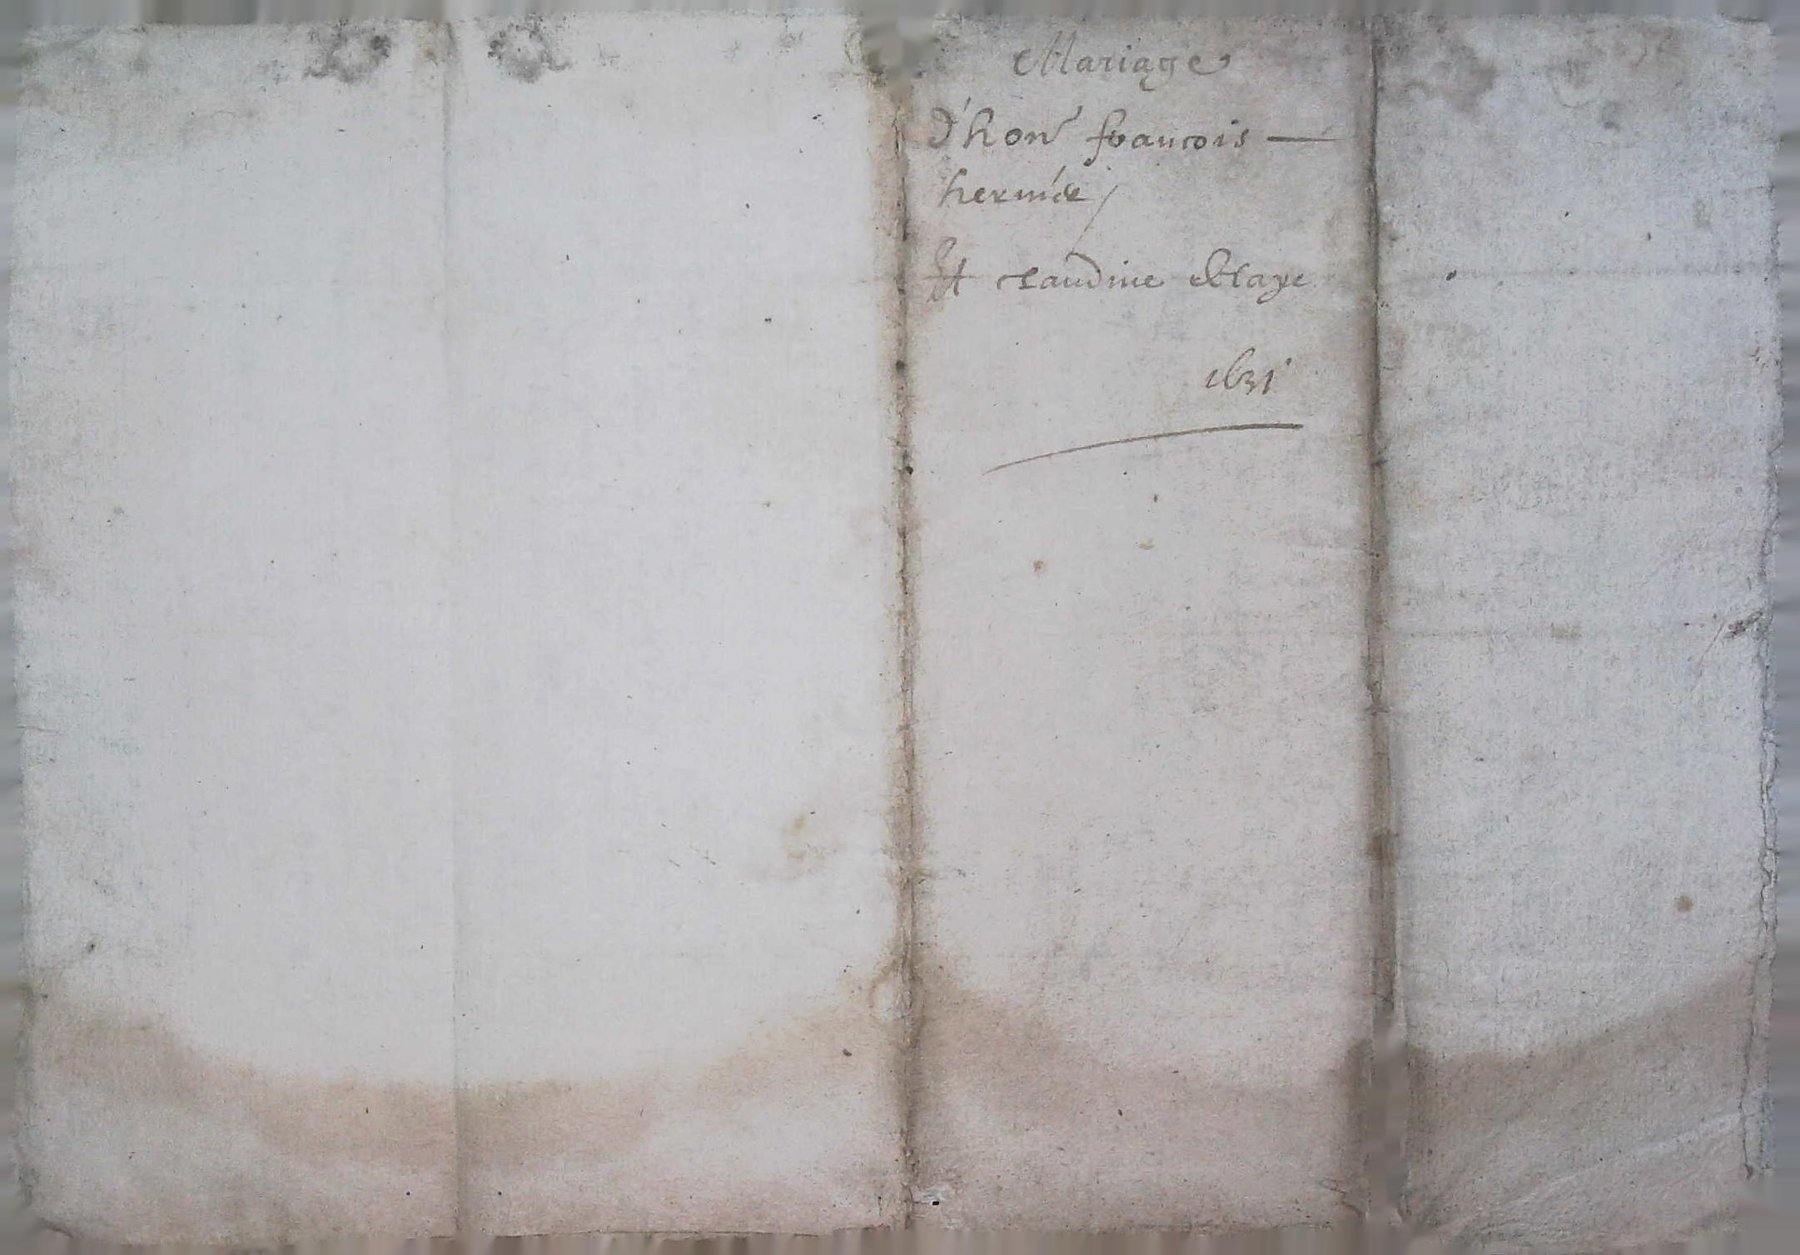 Mariage
d'hon^r francois —
hermite
Et claudine Blaye
1631